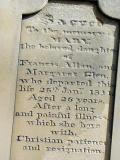 Sacred
To the memory
MARY
the beloved daughter
of
Francis Allen, an
Margaret Glen,
who departed this
life 25th Jany. 18
Aged 26 years.
After a long
and painful illness
which she bore
with
Christian patience
and resignation.